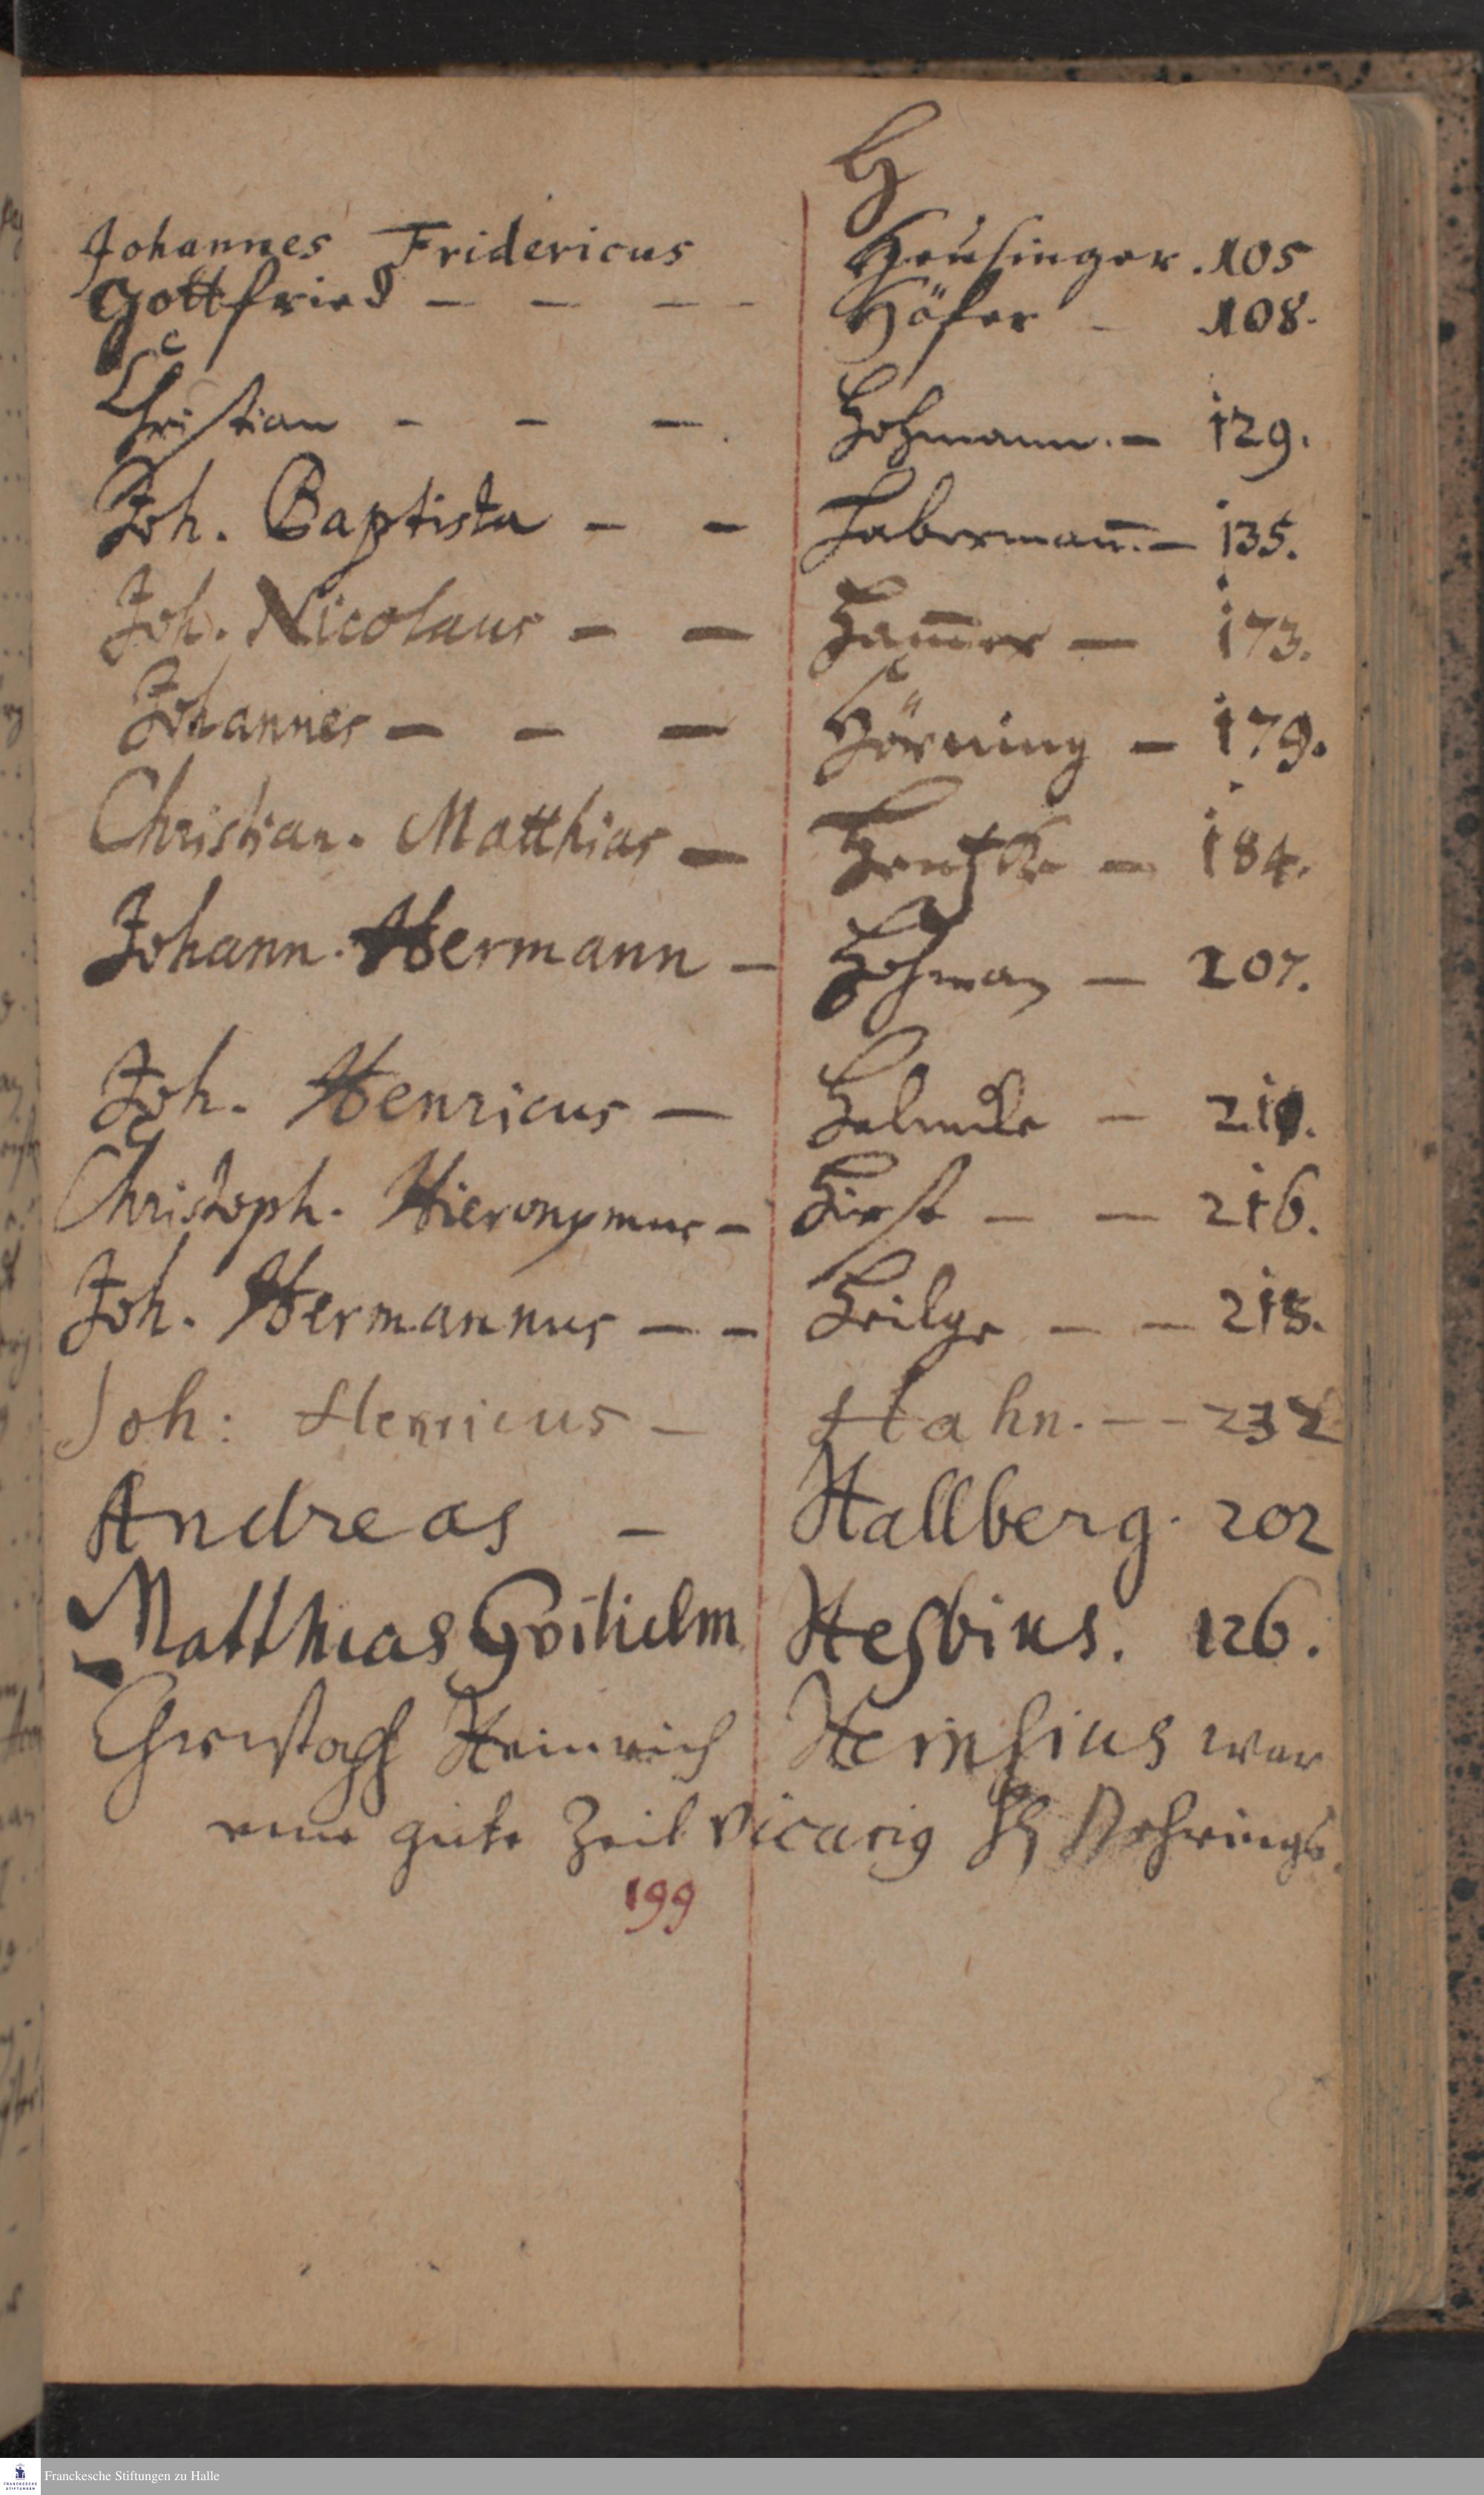 H
Johannes Fridericus Heusinger. 105
Gottfried – – – – Höfer – 108.
Christian – – –. Hohmann. – 129.
Joh. Baptista – – Habermañ. – 135.
Joh. Nicolaus – – Ham̃er – 173.
Johannes – – – Hörning – 179.
Christian. Matthias – 184.
Johann. Hermann – – 207.
Joh. Henricus – Helmcke –
Christoph. Hieronymus – Hirst – – 216.
Joh. Hermannus – – Heilge – – 218.
Joh: Henricus – Hahn. – – 232
Andreas – Hallberg. 202
Matthias Hesbius. 126.
Christoph Heinrich Heinsius war
eine gute Zeit Vicarig Nehrings.
199
Franckesche Stiftungen zu Halle